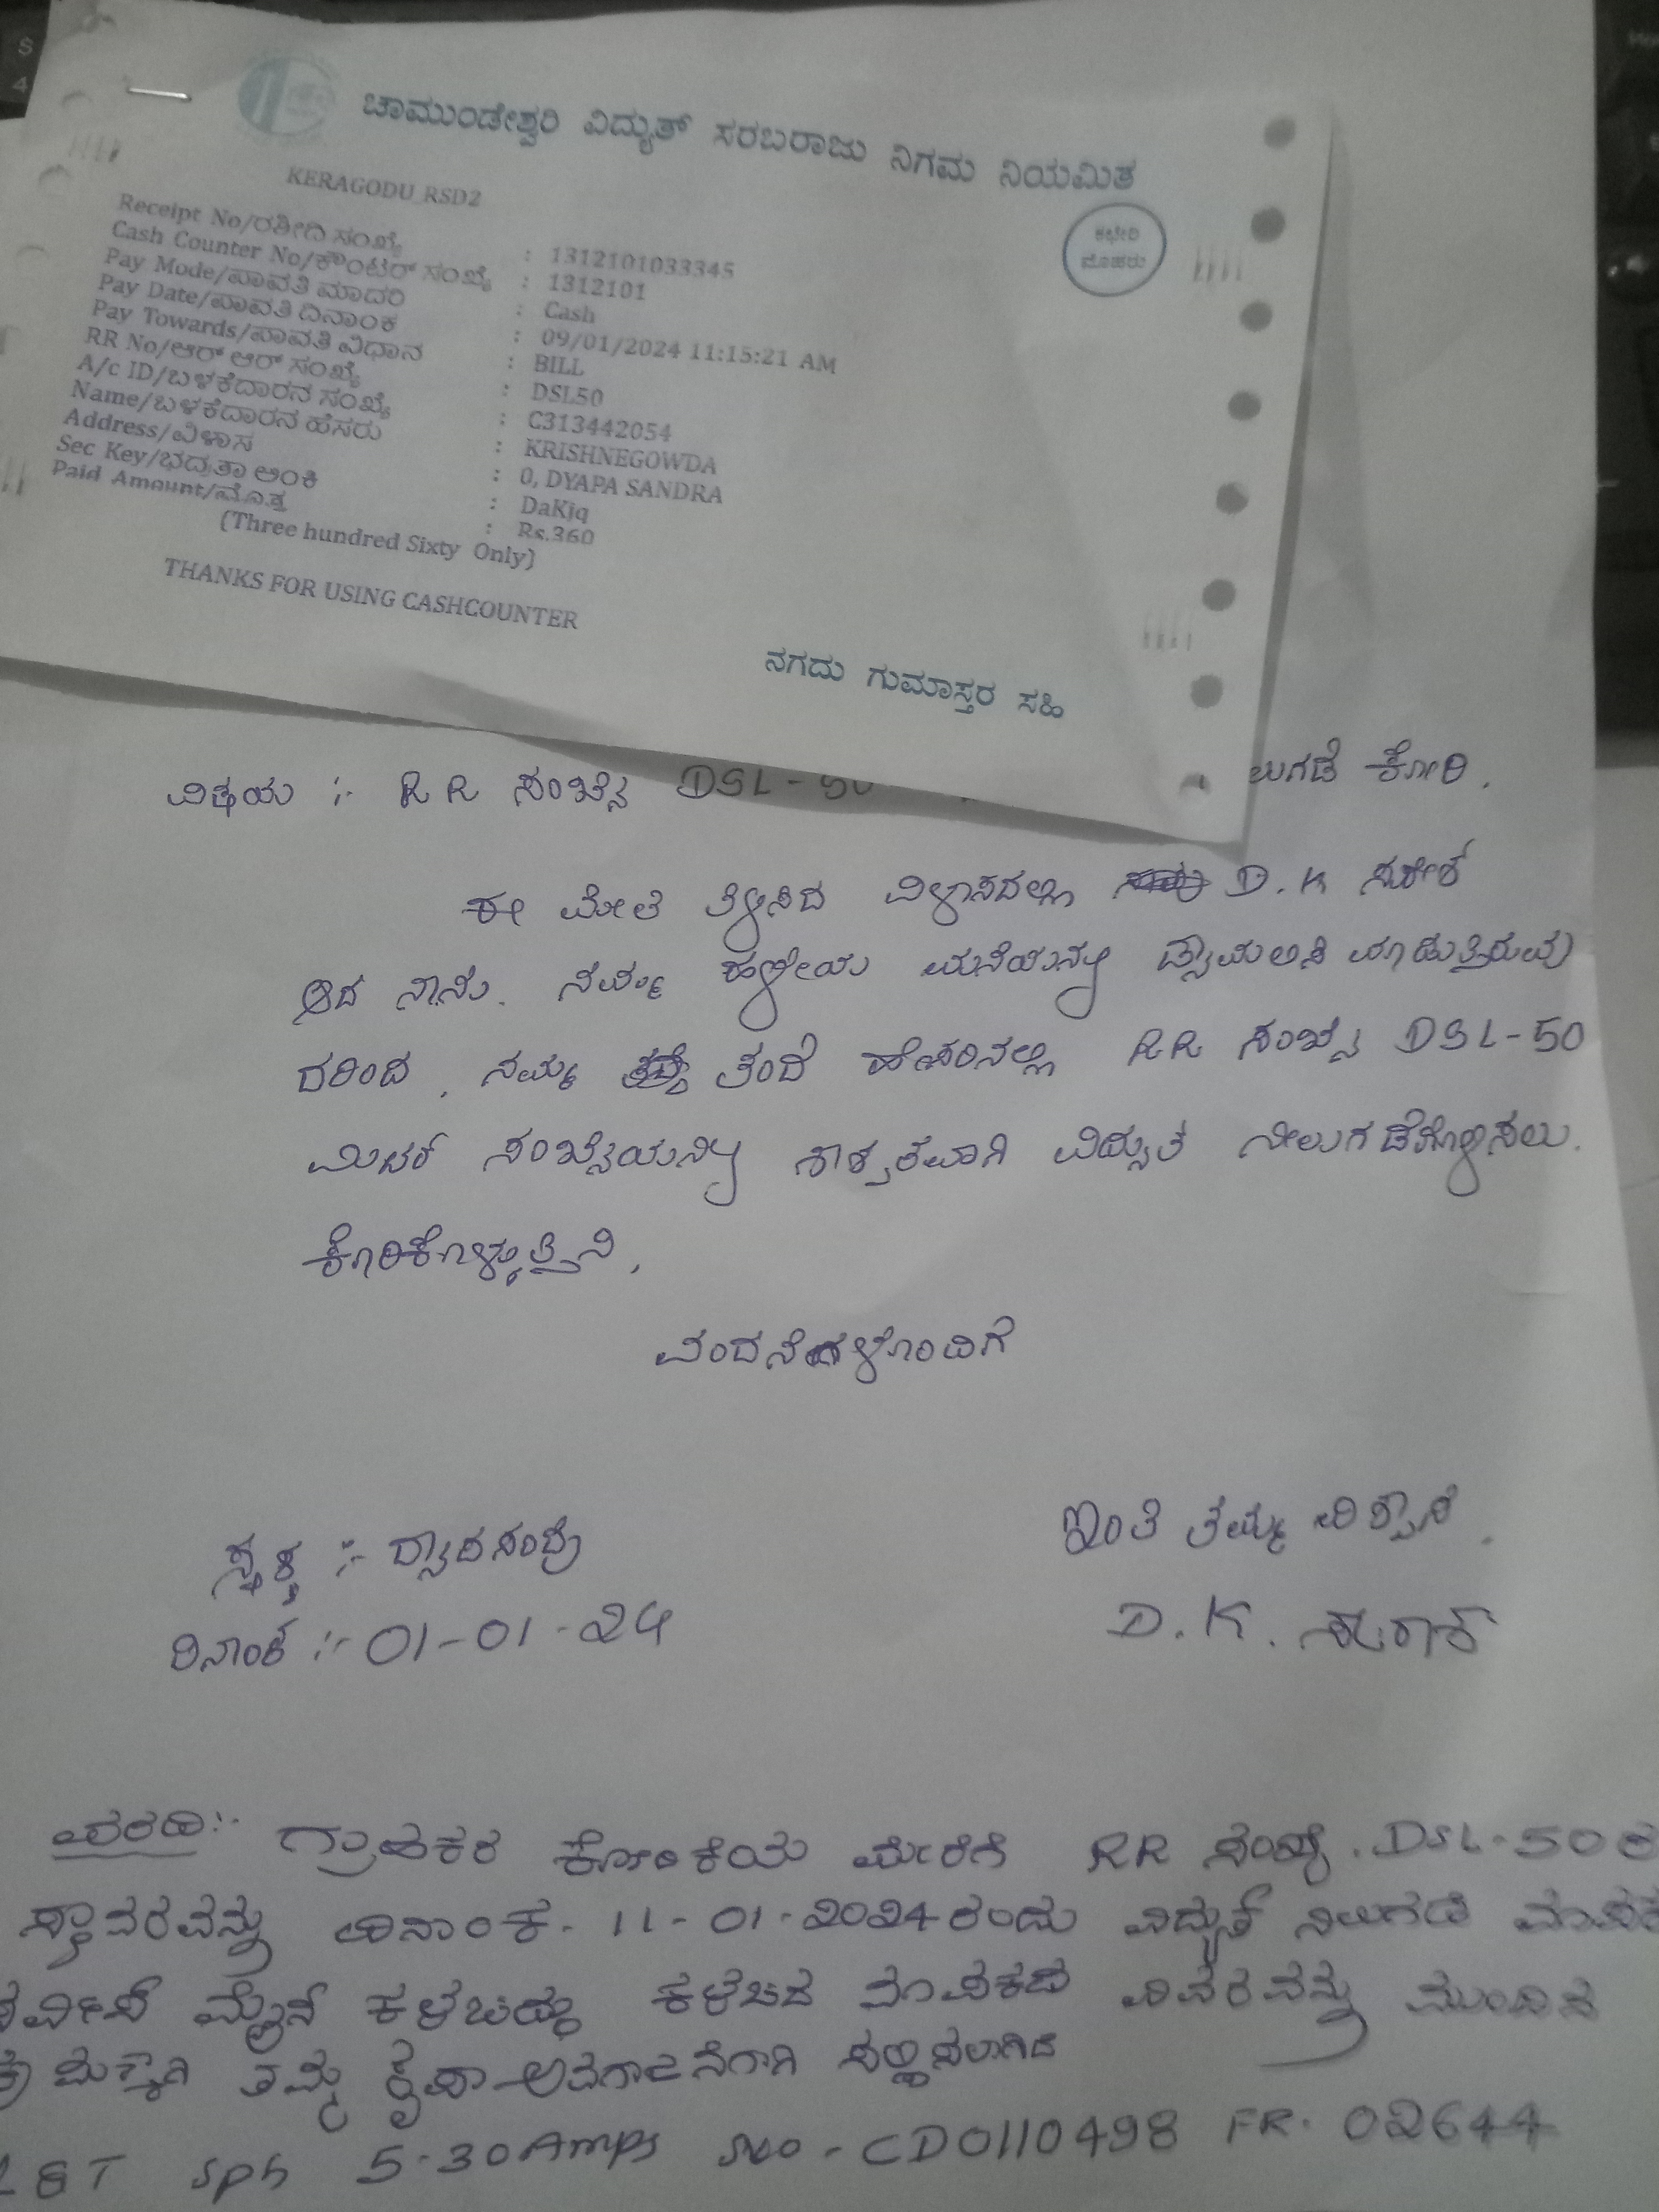 ಚಾಮುಂಡೇಶ್ವರಿ ವಿದ್ಯುತ್ ಸರಬರಾಜು ನಿಗಮ ನಿಯಮಿತ
KERAGODU_RSD2
ಕಛೇರಿ
ಮೊಹರು
Receipt No/ರಶೀದಿ ಸಂಖ್ಯೆ : 1312101033345
Cash Counter No/ಕೌಂಟರ್ ಸಂಖ್ಯೆ : 1312101
Pay Mode/ಪಾವತಿ ಮಾದರಿ : Cash
Pay Date/ಪಾವತಿ ದಿನಾಂಕ : 09/01/2024 11:15:21 AM
Pay Towards/ಪಾವತಿ ವಿಧಾನ : BILL
RR No/ಆರ್ ಆರ್ ಸಂಖ್ಯೆ : DSL50
A/c ID/ಬಳಕೆದಾರನ ಸಂಖ್ಯೆ : C313442054
Name/ಬಳಕೆದಾರನ ಹೆಸರು : KRISHNEGOWDA
Address/ವಿಳಾಸ : 0, DYAPA SANDRA
Sec Key/ಭದ್ರತಾ ಅಂಕಿ : DaKjq
Paid Amount/ಮೊತ್ತ : Rs.360
(Three hundred Sixty Only)
THANKS FOR USING CASHCOUNTER
ನಗದು ಗುಮಾಸ್ತರ ಸಹಿ
ವಿಷಯ :- RR ಸಂಖ್ಯೆ DSL-50 ಲುಗಡೆ ಕೋರಿ.
ಈ ಮೇಲೆ ತಿಳಿಸಿದ ವಿಳಾಸದಲ್ಲಿ D.K
ಆದ ನಾನು. ನಮ್ಮ ಹಳೇಯ ಮನೆಯನ್ನು
ದರಿಂದ, ನಮ್ಮ ತಂದೆ ಹೆಸರಿನಲ್ಲಿ RR ಸಂಖ್ಯೆ DSL-50
ಮಿಟರ್ ಸಂಖ್ಯೆಯನ್ನು ಶಾಶ್ವತವಾಗಿ ವಿದ್ಯುತ ನೀಲುಗಡೆಗೊಳಿಸಲು.
ಕೊರಿಕೊಳ್ಳುತ್ತೆನಿ,
ವಂದನೆಗಳೊಂದಿಗೆ
ಇಂತಿ ತಮ್ಮ ವಿಶ್ವಾಸಿ.
ಸ್ಥಳ :- ದ್ಯಾಪಸಂದ್ರ
D.K.
ದಿನಾಂಕ :- 01-01-24
ವರದಿ:- ಗ್ರಾಹಕರ ಕೋರಿಕೆಯ ಮೇರೆಗೆ RR ಸಂಖ್ಯೆ. DSL-50 ರ
ಸ್ಥಾವರವನ್ನು ದಿನಾಂಕ. 11-01-2024 ರಂದು ವಿದ್ಯುತ್ ನಿಲುಗಡೆ
ಕಳೆಚಿದ ಮಾಪಕದ ವಿವರವನ್ನು ಮುಂದಿನ
ತಮ್ಮ ಕೃಪಾ ಅವಗಾಹನೆಗಾಗಿ ಸಲ್ಲಿಸಲಾಗಿದೆ
L&T sph 5-30Amps SNo - CD0110498 FR. 02644